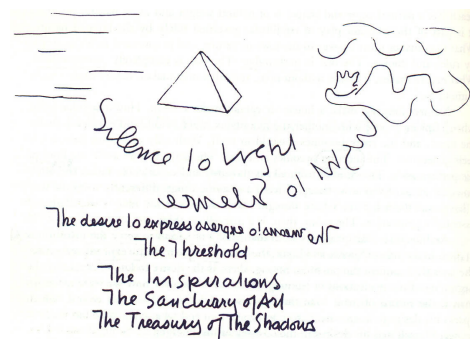 Silence to Light
Light to Silence
The desire to express express to means The
The Threshold
The Inspirations
The Sanctuary of Art
The Treasury of The Shadows